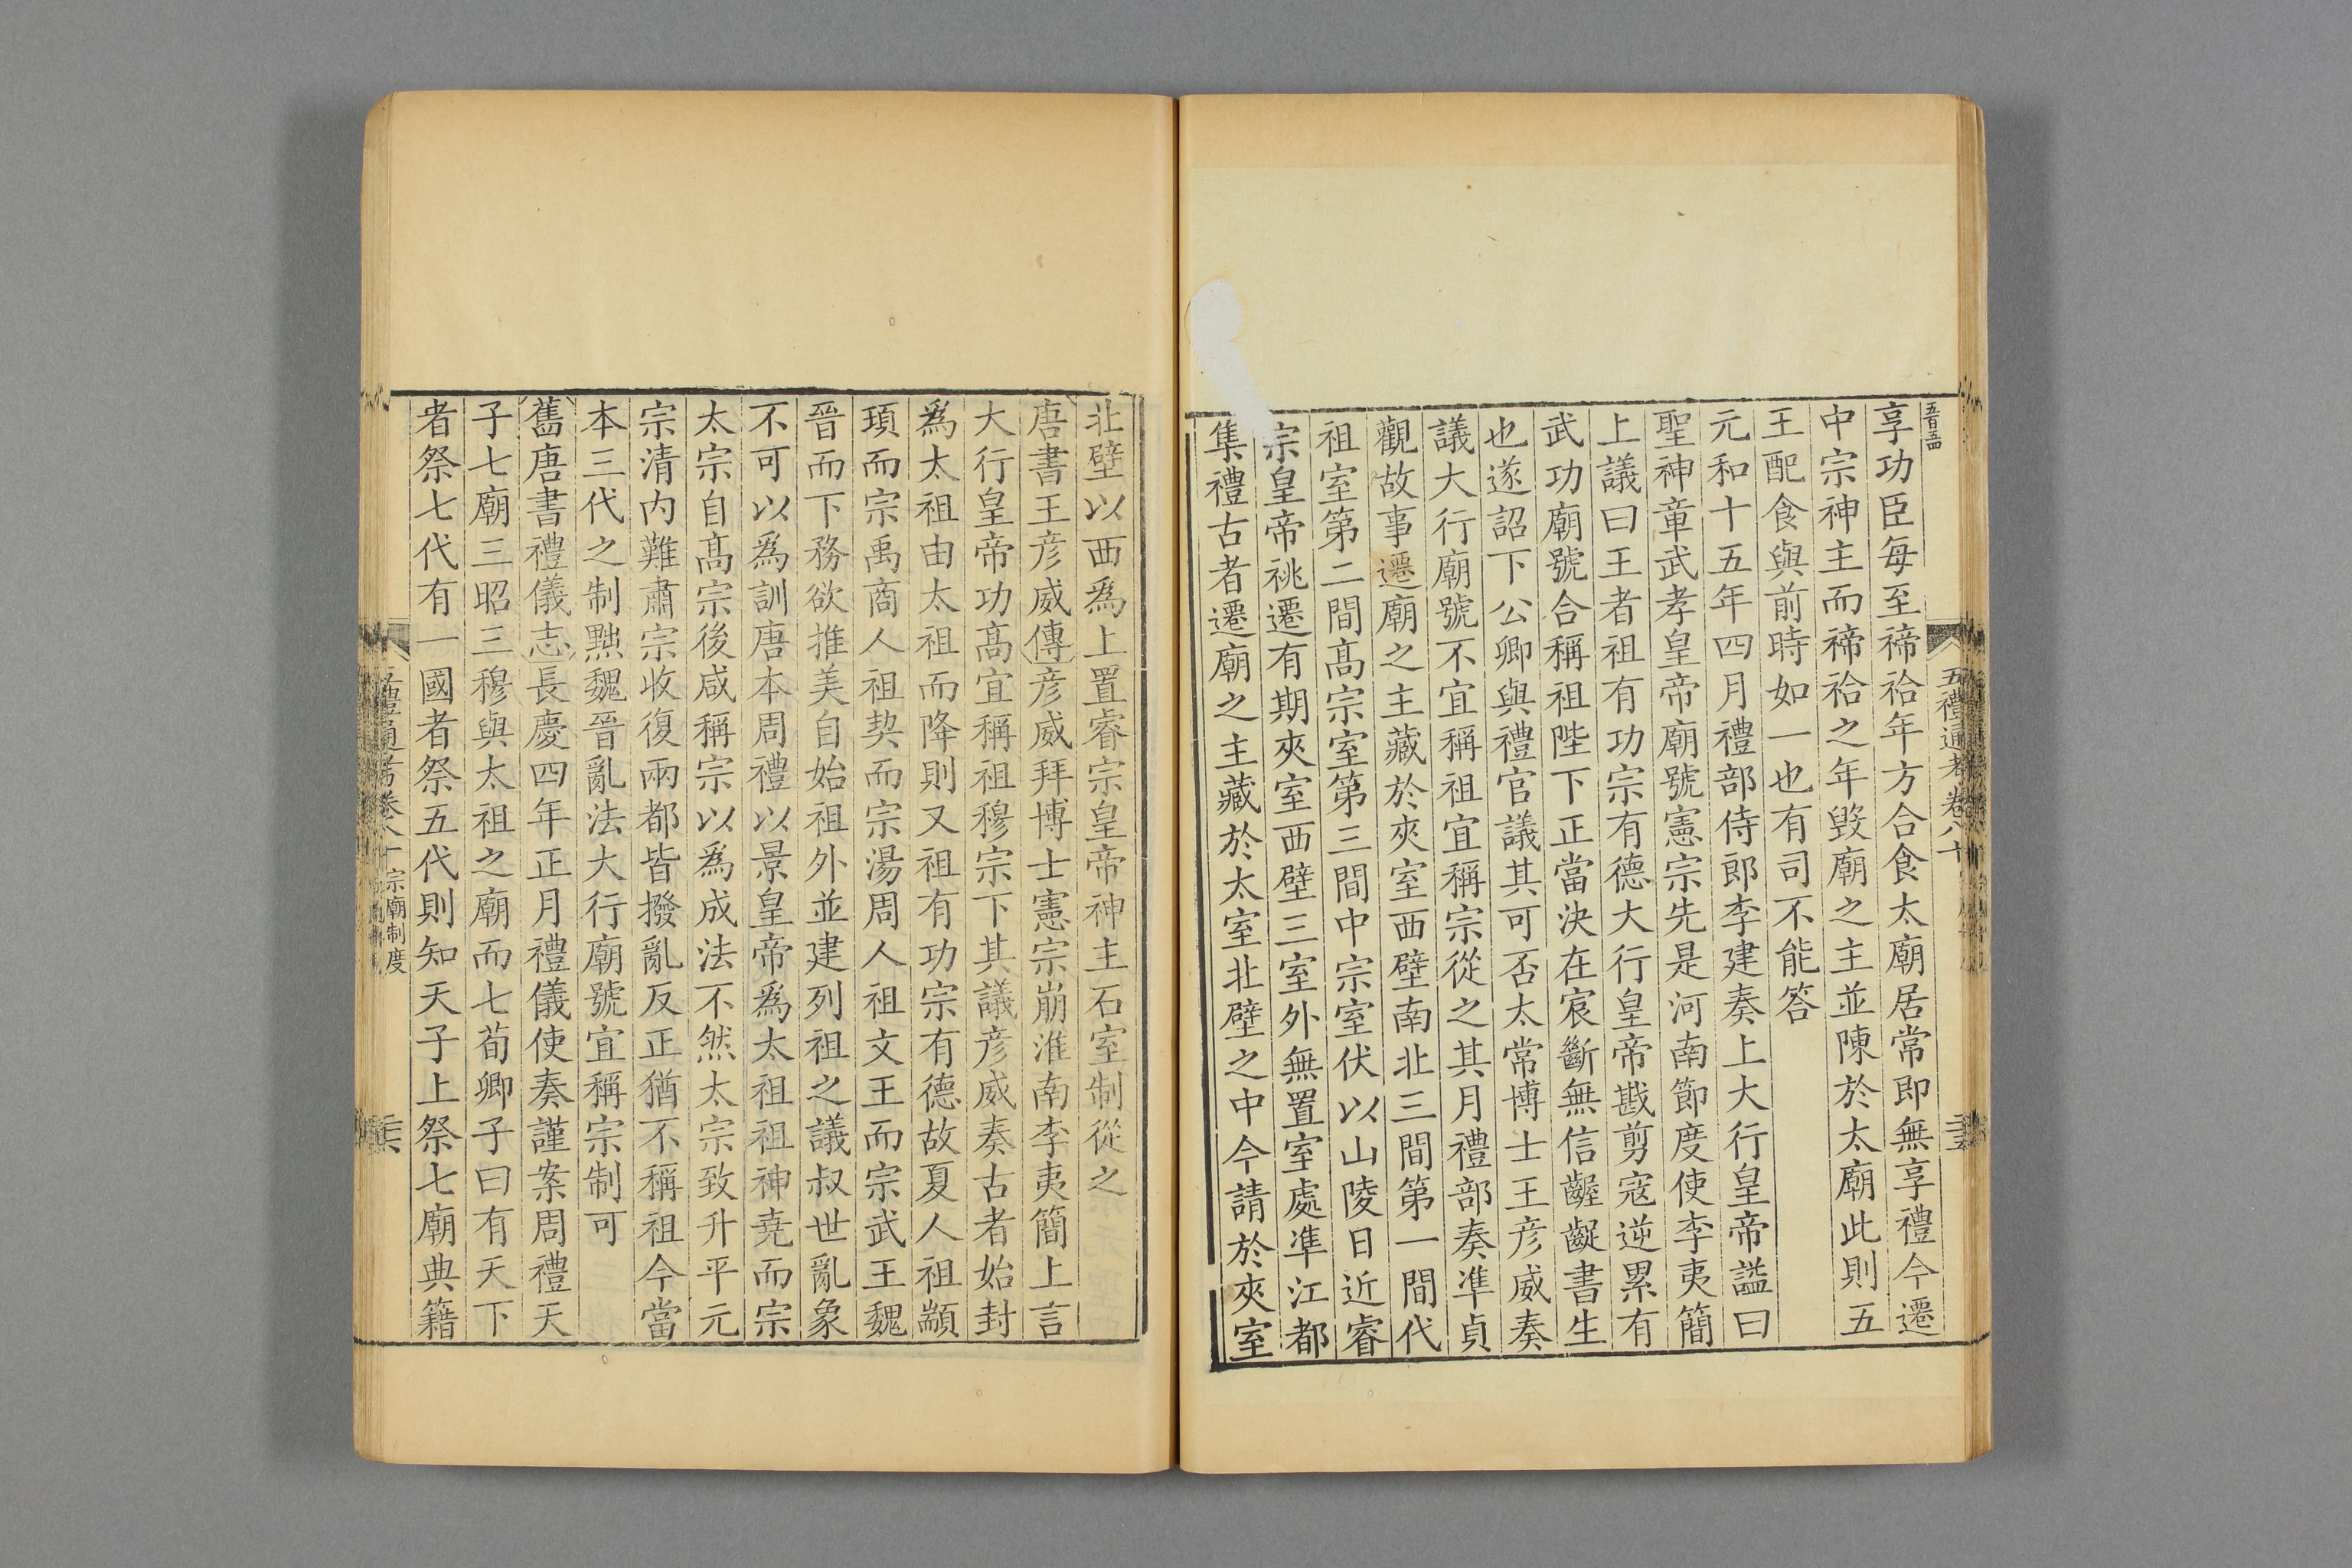 五百五四
五禮通考卷八十
享功臣每至禘祫年方合食太廟居常即無享禮今遷
中宗神主而禘祫之年毀廟之主並陳於太廟此則五
王配食與前時如一也有司不能答
元和十五年四月禮部侍郎李建奏上大行皇帝謚曰
聖神章武孝皇帝廟號憲宗先是河南節度使李夷簡
上議曰王者祖有功宗有德大行皇帝戡剪寇逆累有
武功廟號合稱祖陛下正當決在宸斷無信齷齪書生
也遂詔下公卿與禮官議其可否太常博士王彦威奏
議大行廟號不宜稱祖宜稱宗從之其月禮部奏準貞
觀故事遷廟之主藏於夾室西壁南北三間第一間代
祖室第二間髙宗室第三間中宗室伏以山陵日近睿
宗皇帝祧遷有期夾室西壁三室外無置室處準江都
集禮古者遷廟之主藏於太室北壁之中今請於夾室
北壁以西爲上置睿宗皇帝神主石室制從之
唐書王彦威傳彦威拜博士憲宗崩淮南李夷簡上言
大行皇帝功髙宜稱祖穆宗下其議彦威奏古者始封
爲太祖由太祖而降則又祖有功宗有德故夏人祖顓
頊而宗禹商人祖契而宗湯周人祖文王而宗武王魏
晉而下務欲推美自始祖外並建列祖之議叔世亂象
不可以爲訓唐本周禮以景皇帝爲太祖祖神堯而宗
太宗自髙宗後咸稱宗以爲成法不然太宗致升平元
宗清内難肅宗收復兩都皆撥亂反正猶不稱祖今當
本三代之制黜魏晉亂法大行廟號宜稱宗制可
舊唐書禮儀志長慶四年正月禮儀使奏謹案周禮天
子七廟三昭三穆與太祖之廟而七荀卿子曰有天下
者祭七代有一國者祭五代則知天子上祭七廟典籍
宗廟制度